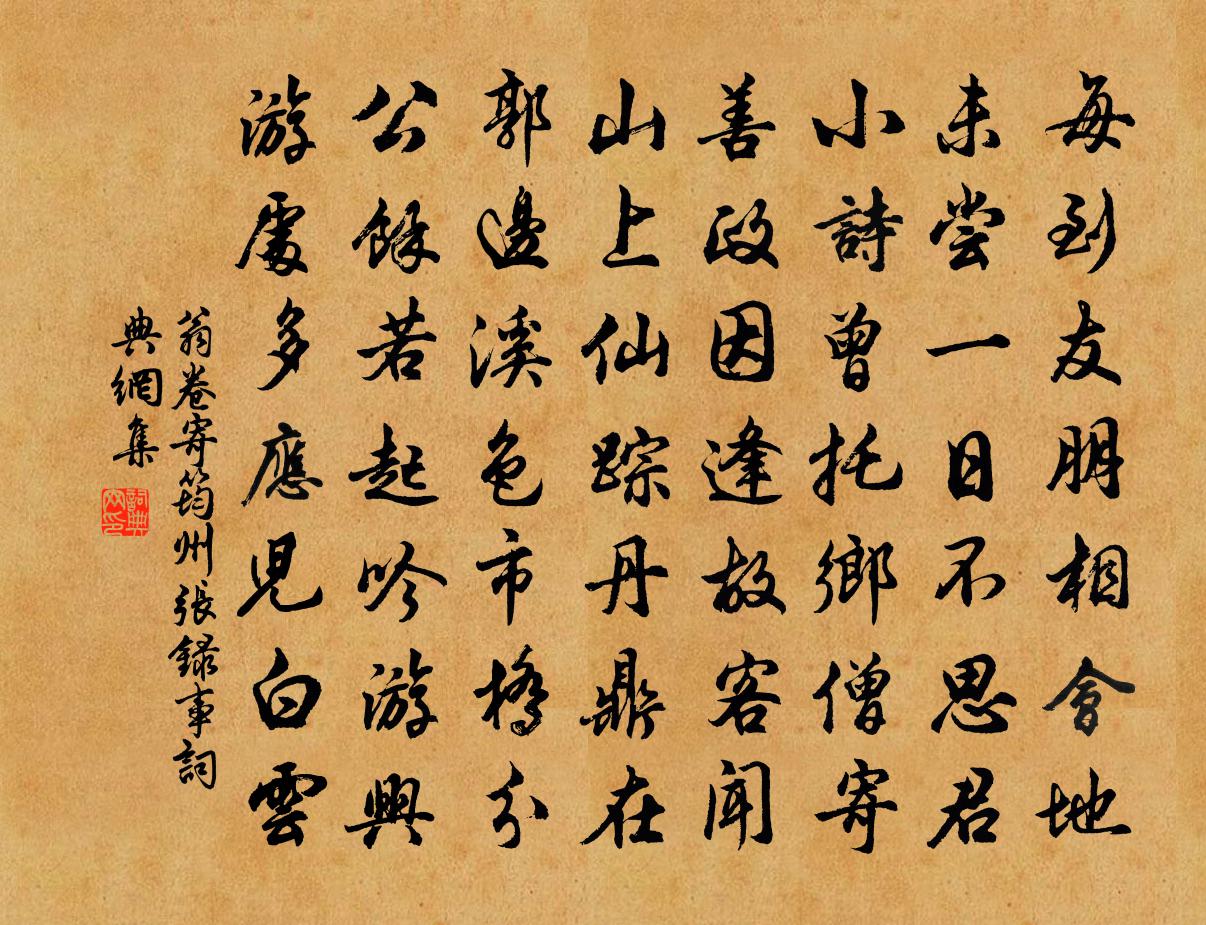 每到友朋相會地
未尝一日不思君
小詩曾托鄉僧寄
善政因逢故客聞
山上仙踪丹鼎在
郭邊溪色市橋分
公餘若起吟游興
游處多應見白雲
翁卷寄筠州張録事詞
典網集
詞典
网印